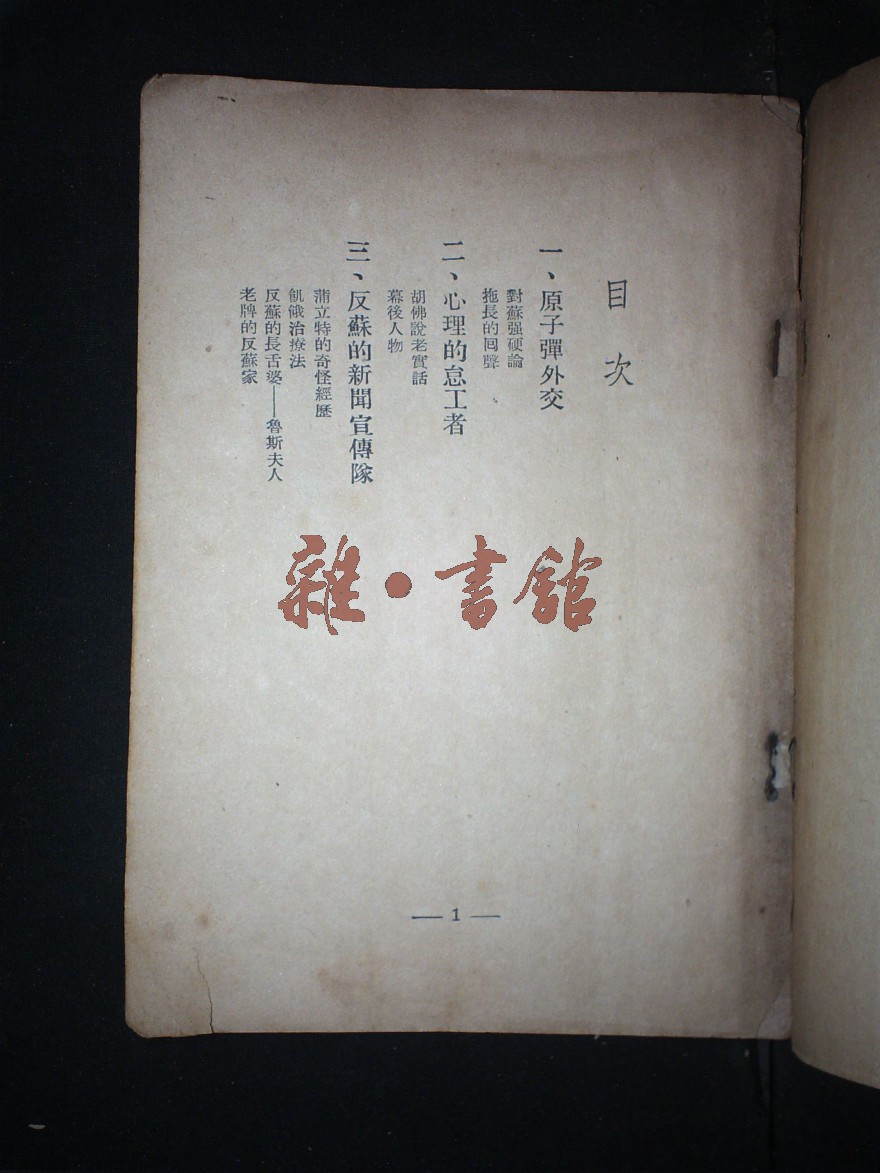 目次
一、原子彈外交
對蘇强硬論
拖長的回聲
二、心理的怠工者
胡佛說老實話
幕後人物
三、反蘇的新聞宣傳隊
蒲立特的奇怪經歷
飢餓治療法
反蘇的長舌婆——魯斯夫人
老牌的反蘇家
雜·書館
— 1 —